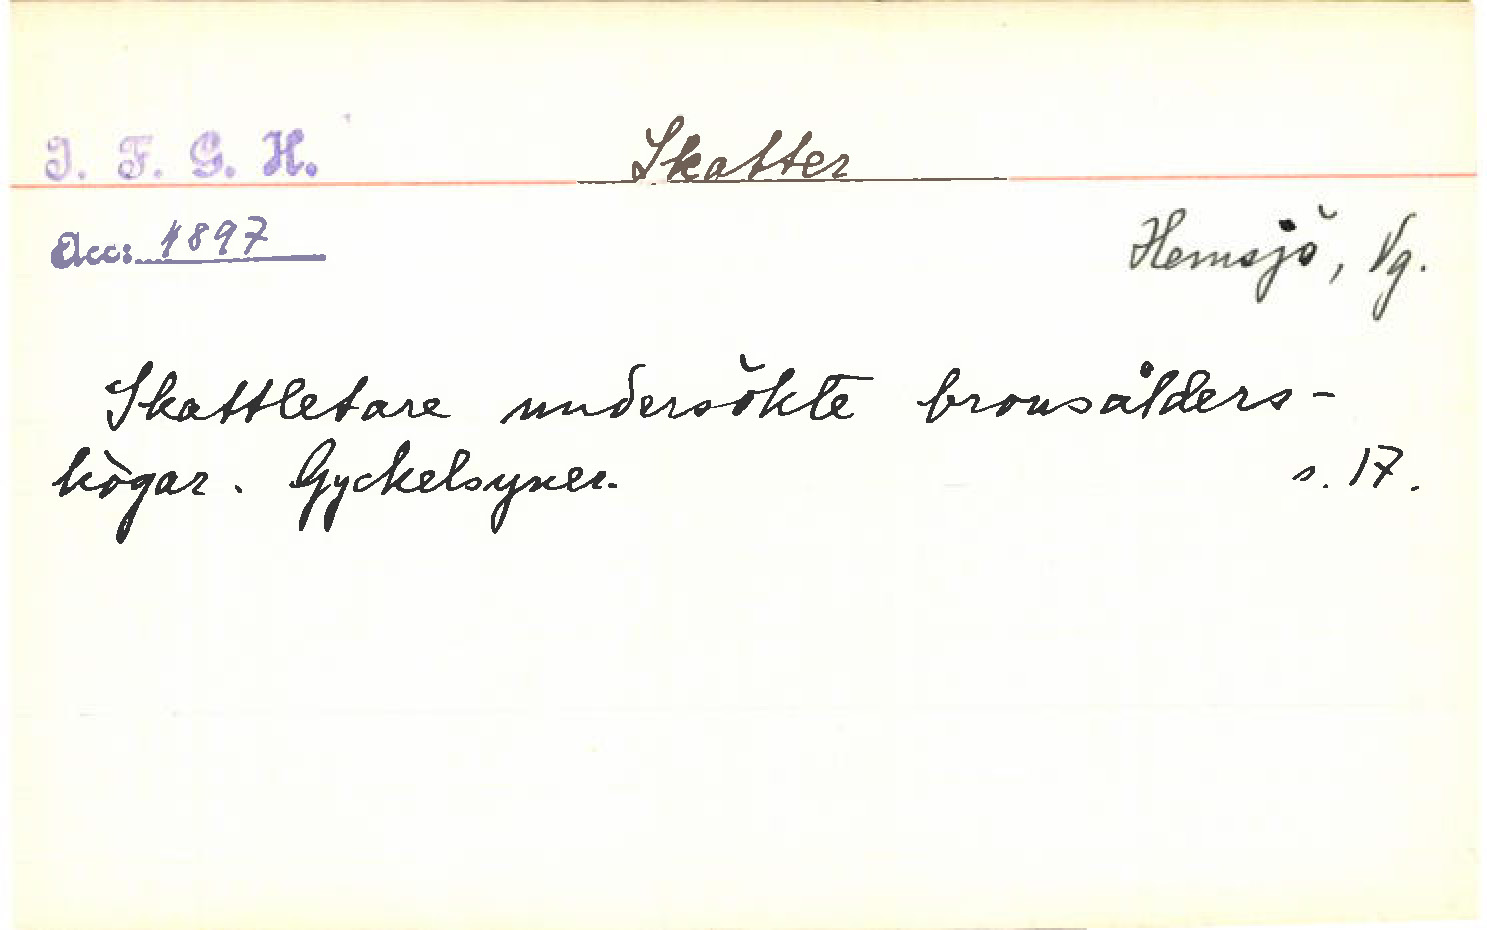 I. F. G. H.
Skatter
Acc: 1897
Hemsjö, Vg.
Skattletare undersökte bronsålders-
högar. Gyckelsyner.
s. 17.